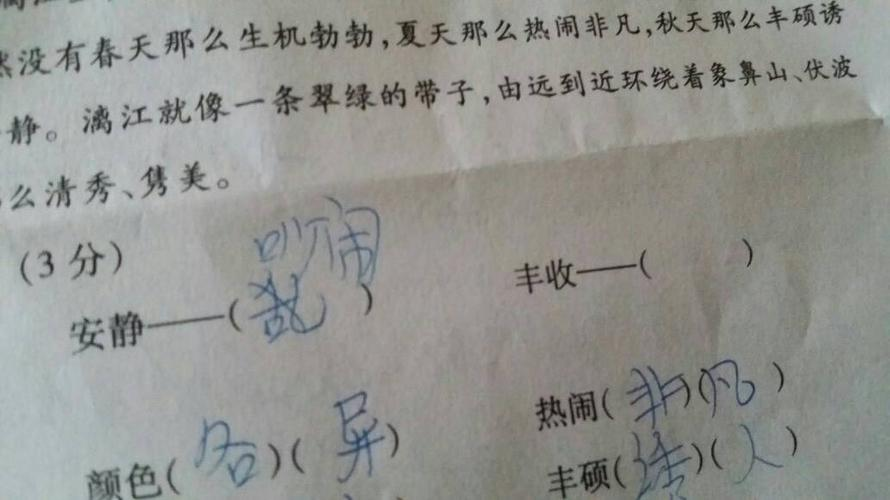 没有春天那么生机勃勃,夏天那么热闹非凡,秋天那么丰硕诱
静。漓江就像一条翠绿的带子,由远到近环绕着象鼻山、伏波
么清秀、隽美。
(3分)
闹
安静——(乱) 丰收——( )
热闹(非)(凡)
颜色(各)(异) 丰硕(诱)(人)